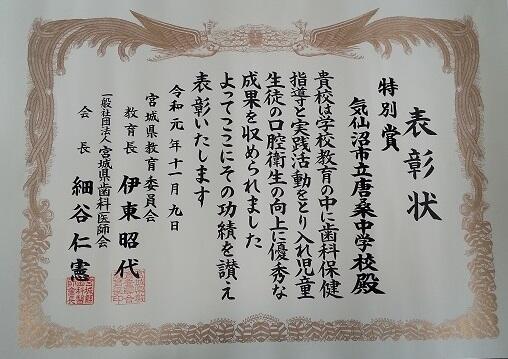 表彰状
特別賞
気仙沼市立唐桑中学校殿
貴校は学校教育の中に歯科保健
指導と実践活動をとり入れ児童
生徒の口腔衛生の向上に優秀な
成果を収められました
よってここにその功績を讃え
表彰いたします
令和元年十一月九日
宮城県教育委員会
教育長 伊東昭代
一般社団法人宮城県歯科医師会
会長 細谷仁憲